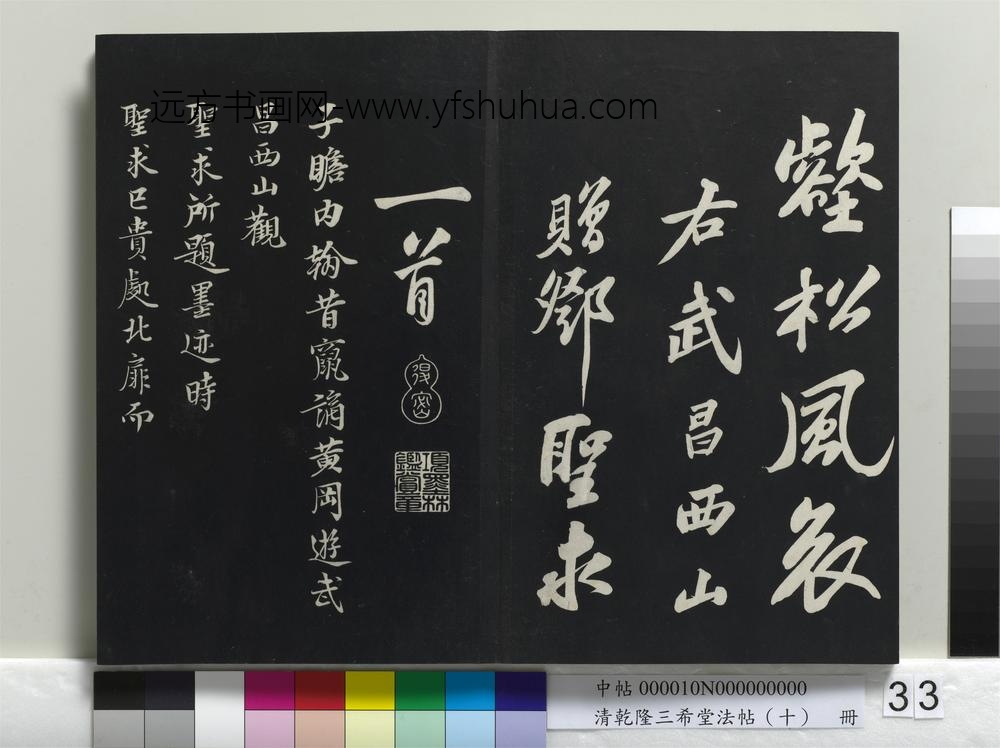 壑松風哀
右武昌西山
贈鄧聖求
一首
子瞻内翰昔竄謫黃岡遊武
昌西山觀
聖求所題墨迹時
聖求已貴處北扉而
項墨林
鑑賞章
远方书画网-www.yfshuhua.com
中帖 000010N000000000
清乾隆三希堂法帖（十） 冊
33